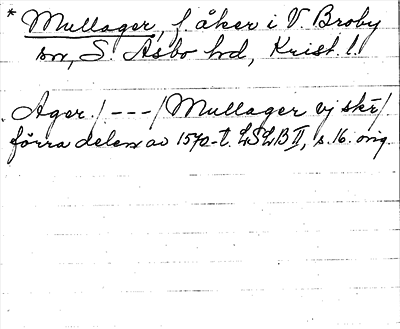 * Mullager, f. åker i V. Broby
sn, S. Åsbo hd, Krist. l.
Ager / --- / Mullager vj skr /
förra delen av 1570-t. LSLB II, s. 16. orig.